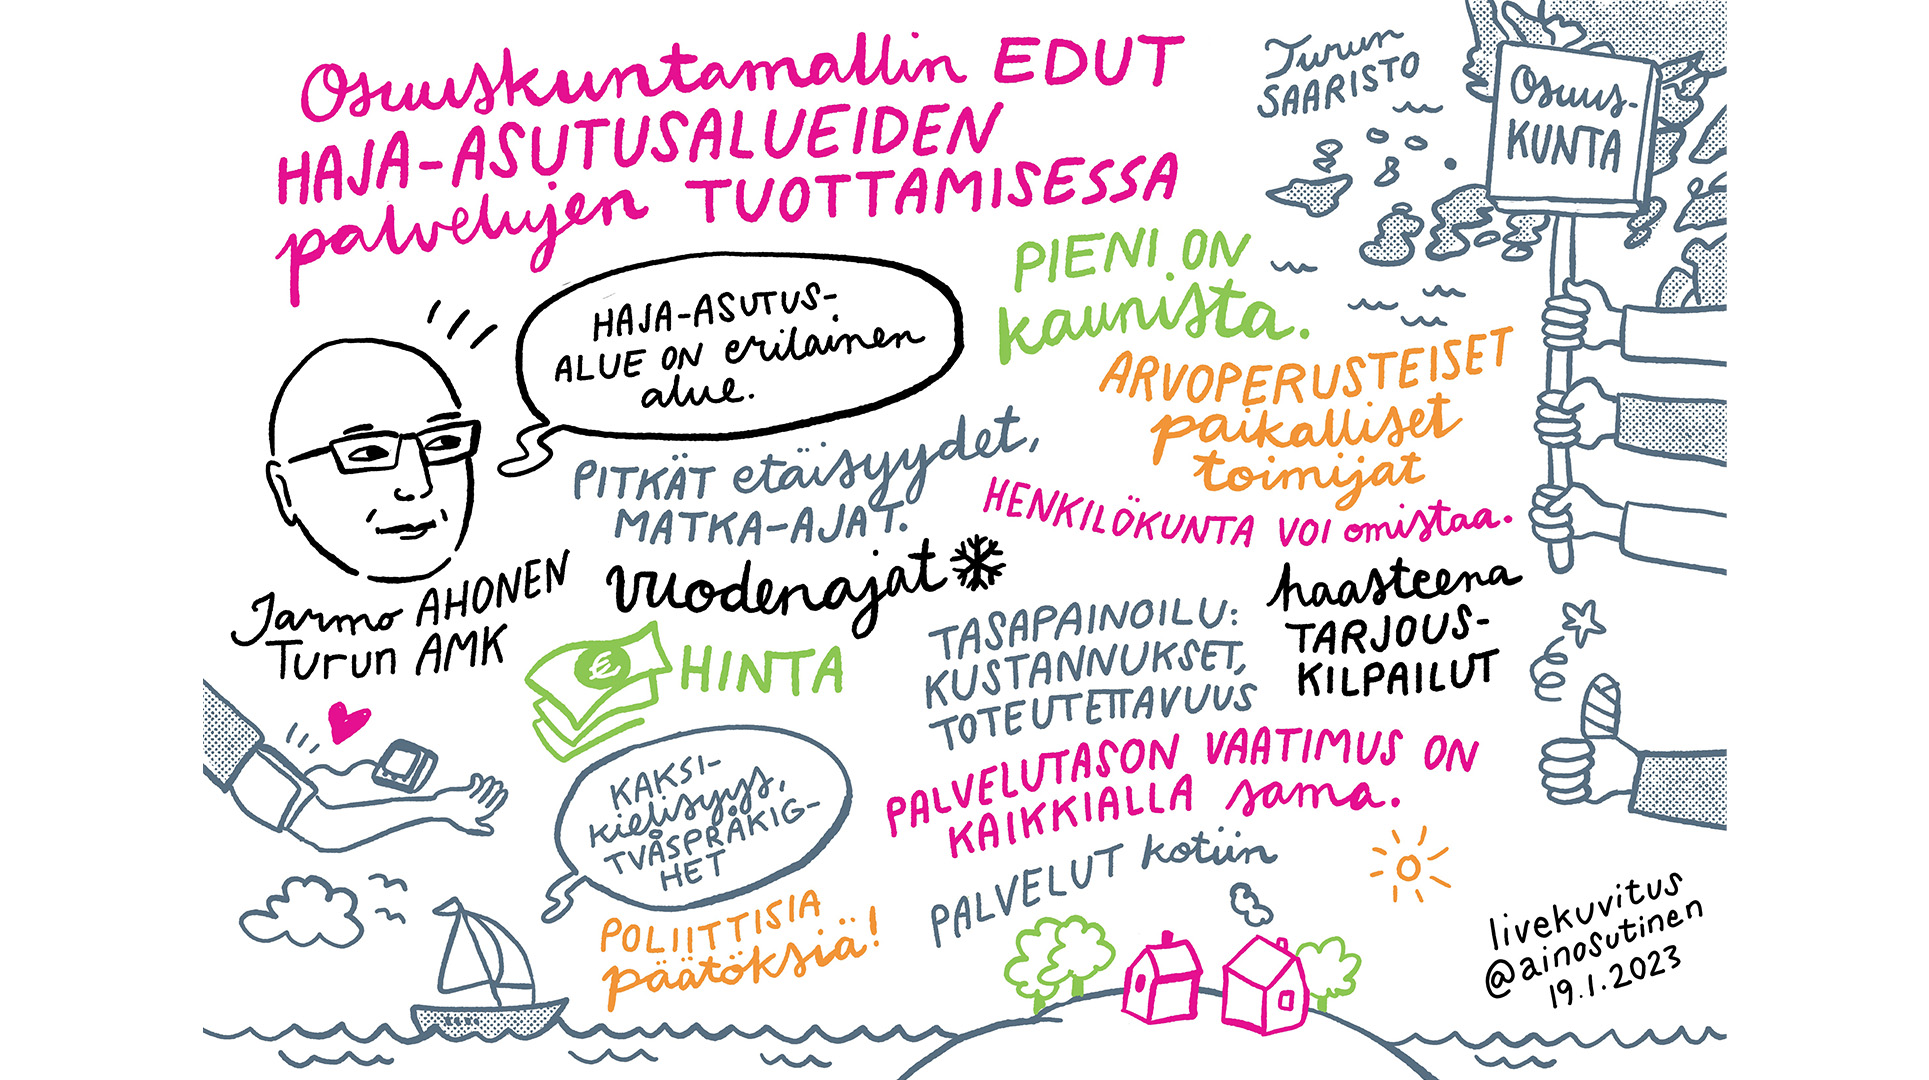 Osuuskuntamallin EDUT
HAJA-ASUTUSALUEIDEN
palvelujen TUOTTAMISESSA
Turun
SAARISTO
Osuus-
KUNTA
HAJA-ASUTUS-
ALUE ON erilainen
alue.
PIENI ON
kaunista.
ARVOPERUSTEISET
paikalliset
toimijat
PITKÄT etäisyydet,
MATKA-AJAT.
HENKILÖKUNTA VOI omistaa.
vuodenajat
Jarmo AHONEN
Turun AMK
HINTA
€
TASAPAINOILU:
KUSTANNUKSET,
TOTEUTETTAVUUS
haasteena
TARJOUS-
KILPAILUT
KAKSI-
kielisyys,
TVÅSPRÅKIG-
HET
PALVELUTASON VAATIMUS ON
KAIKKIALLA sama.
PALVELUT kotiin
POLIITTISIA
päätöksiä!
livekuvitus
@ainosutinen
19.1.2023